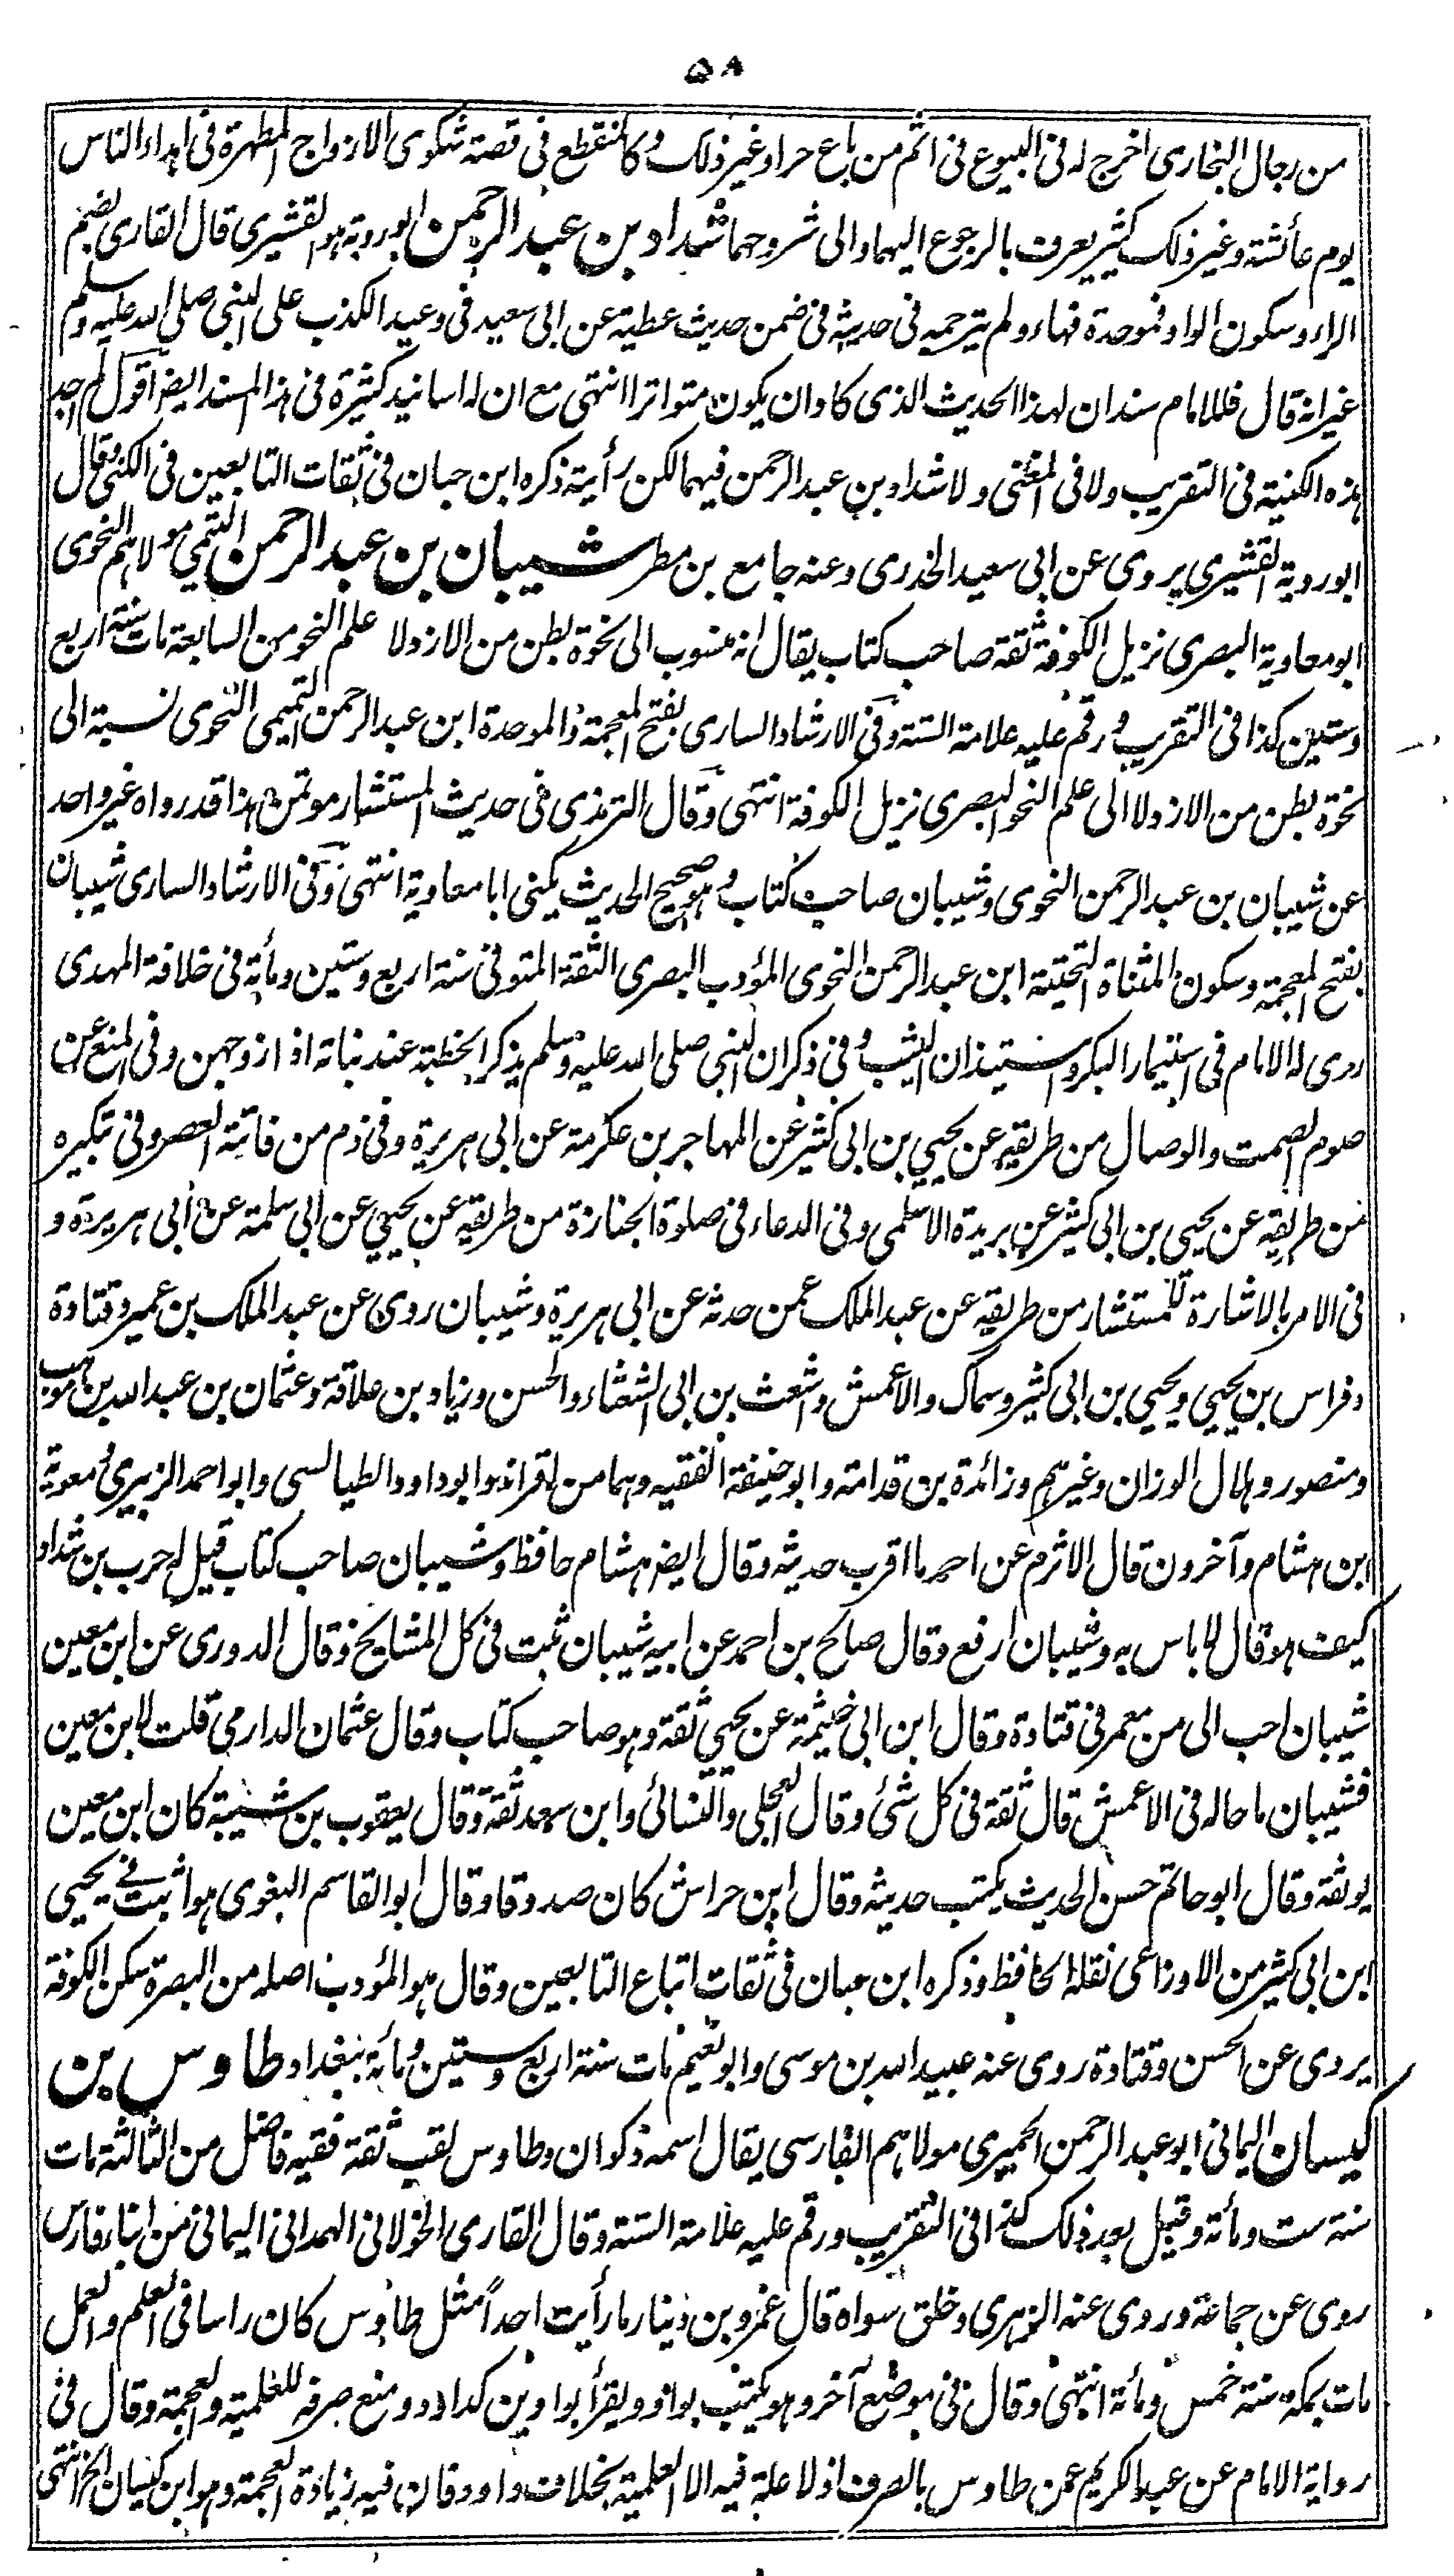 ٥٨
من رجال البخارى اخرج له فى البيوع فى اثم من باع حرا وغير ذلك وكالمنقطع فى قصة شكوى الازواج المطهرة فى اهداء الناس
يوم عائشة وغير ذلك كثير يعرف بالرجوع اليهما والى شروحهما شداد بن عبد الرحمن ابو روبة هو القشيرى قال القارى بضم
الراء وسكون الواو فموحدة فهاء ولم يترجمه فى حديثه فى ضمن حديث عطية عن ابى سعيد فى وعيد الكذب على النبى صلى الله عليه وسلم
غير انه قال فللامام سندان لهذا الحديث الذى كاد ان يكون متواترا انتهى مع ان له اسانيد كثيرة فى هذا المسند ايضا اقول لم اجد
هذه الكنية فى التقريب ولا فى المغنى ولا شداد بن عبد الرحمن فيهما لكن رأيته ذكره ابن حبان فى ثقات التابعين فى الكنى وقال
ابو روبة القشيرى يروى عن ابى سعيد الخدرى وعنه جامع بن مطر شيبان بن عبد الرحمن التميمى مولاهم النحوى
ابو معاوية البصرى نزيل الكوفة ثقة صاحب كتاب يقال انه منسوب الى نحوة بطن من الازد لا علم النحو من السابعة مات سنة اربع
وستين كذا فى التقريب ورقم عليه علامة الستة وفى الارشاد السارى بفتح المعجمة والموحدة ابن عبد الرحمن التميمى النحوى نسبة الى
نحوة بطن من الازد لا الى علم النحو البصرى نزيل الكوفة انتهى وقال الترمذى فى حديث المستشار مؤتمن هذا قد رواه غير واحد
عن شيبان بن عبد الرحمن النحوى وشيبان صاحب كتاب وهو صحيح الحديث يكنى ابا معاوية انتهى وفى الارشاد السارى شيبان
بفتح المعجمة وسكون المثناة التحتية ابن عبد الرحمن النحوى المؤدب البصرى الثقة المتوفى سنة اربع وستين ومأية فى خلافة المهدى
روى له الامام فى استيمار البكر واستيذان الثيب وفى ذكر ان النبى صلى الله عليه وسلم يذكر الخطبة عند بناته اذا ازوجهن وفى المنع عن
صوم الصمت والوصال من طريقه عن يحيى بن ابى كثير عن المهاجر بن عكرمة عن ابى هريرة وفى ذم من فاتته العصر وفى تبكيره
من طريقه عن يحيى بن ابى كثير عن بريدة الاسلمى وفى الدعاء فى صلوة الجنازة من طريقه عن يحيى عن ابى سلمة عن ابى هريرة و
فى الامر بالاشارة للمستشار من طريقه عن عبد الملك عمن حدثه عن ابى هريرة وشيبان روى عن عبد الملك بن عمير وقتادة
وفراس بن يحيى ويحيى بن ابى كثير وسماك والاعمش واشعث بن ابى الشعثاء والحسن وزياد بن علاقة وعثمان بن عبد الله بن موهب
ومنصور وهلال الوزان وغيرهم وزائدة بن قدامة وابو حنيفة الفقيه وهما من اقرانه وابو داود الطيالسى وابو احمد الزبيرى ومعوية
ابن هشام وآخرون قال الاثرم عن احمد ما اقرب حديثه وقال ايضا هشام حافظ وشيبان صاحب كتاب قيل له حرب بن شداد
كيف هو قال لا باس به وشيبان ارفع وقال صالح بن احمد عن ابيه شيبان ثبت فى كل المشايخ وقال الدورى عن ابن معين
شيبان احب الى من معمر فى قتادة وقال ابن ابى خيثمة عن يحيى ثقة وهو صاحب كتاب وقال عثمان الدارمى قلت لابن معين
فشيبان ما حاله فى الاعمش قال ثقة فى كل شئ وقال العجلى والنسائى وابن سعد ثقة وقال يعقوب بن شيبة كان ابن معين
يوثقه وقال ابو حاتم حسن الحديث يكتب حديثه وقال ابن حراش كان صدوقا وقال ابو القاسم البغوى هو اثبت فى يحيى
ابن ابى كثير من الاوزاعى نقله الحافظ وذكره ابن حبان فى ثقات اتباع التابعين وقال هو المؤدب اصله من البصرة سكن الكوفة
يروى عن الحسن وقتادة روى عنه عبيد الله بن موسى وابو نعيم مات سنة اربع وستين ومأئة ببغداد طاوس بن
كيسان اليمانى ابو عبد الرحمن الحميرى مولاهم الفارسى يقال اسمه ذكوان وطاوس لقب ثقة فقيه فاضل من الثالثة مات
سنة ست ومأئة وقيل بعد ذلك كذا فى التقريب ورقم عليه علامة الستة وقال القارى الخولانى الهمدانى اليمانى من ابناء فارس
روى عن جماعة وروى عنه الزهرى وخلق سواه قال عمرو بن دينار ما رأيت احداً مثل طاوس كان راسا فى العلم والعمل
مات بمكة سنة خمس ومأئة انتهى وقال فى موضع آخر وهو يكتب بواو ويقرأ بواوين كداود ومنع صرفه للعلمية والعجمة وقال فى
رواية الامام عن عبد الكريم عمن طاوس بالصرف اذ لا علة فيه الا العلمية بخلاف داود فان فيه زيادة العجمة وهو ابن كيسان الخ انتهى